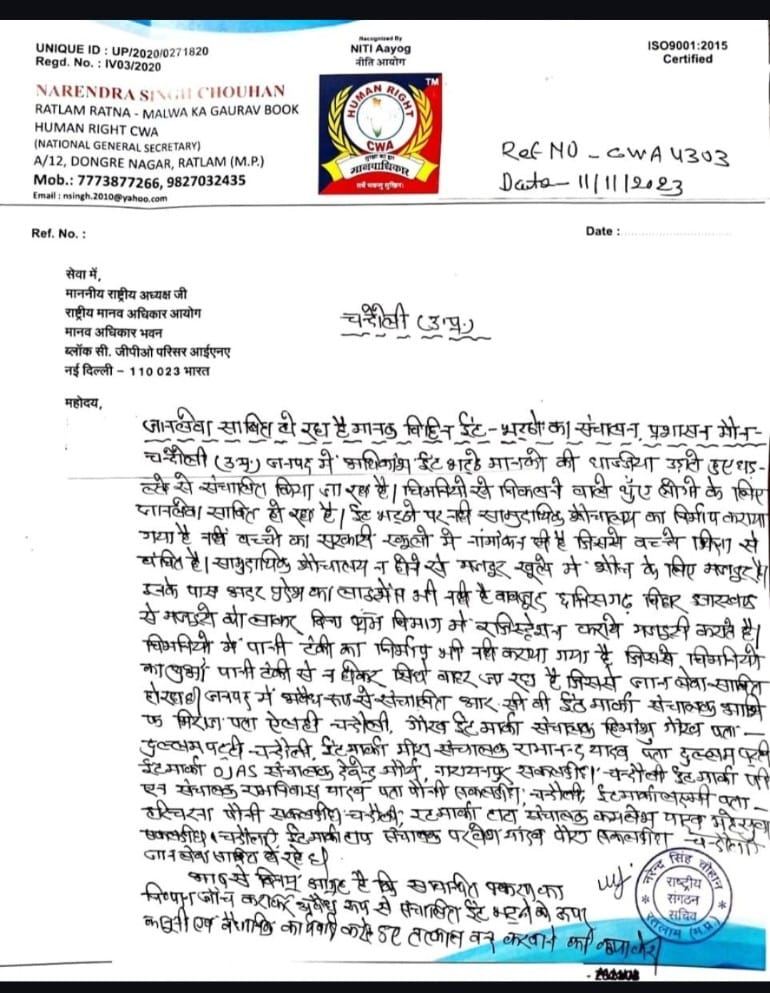 UNIQUE ID : UP/2020/0271820
Regd. No. : IV03/2020
Recognized By
NITI Aayog
नीति आयोग
ISO9001:2015
Certified
NARENDRA SINGH CHOUHAN
RATLAM RATNA - MALWA KA GAURAV BOOK
HUMAN RIGHT CWA
(NATIONAL GENERAL SECRETARY)
A/12, DONGRE NAGAR, RATLAM (M.P.)
Mob.: 7773877266, 9827032435
Email : nsingh.2010@yahoo.com
TM
HUMAN RIGHT
CWA
मानवाधिकार
Ref NO - CWA 4303
Date - 11/11/2023
Ref. No. :
Date :
सेवा में,
माननीय राष्ट्रीय अध्यक्ष जी
राष्ट्रीय मानव अधिकार आयोग
मानव अधिकार भवन
ब्लॉक सी. जीपीओ परिसर आईएनए
नई दिल्ली – 110 023 भारत
चन्दौली (उ.प्र.)
महोदय,
जानलेवा साबित हो रहा है मानक विहिन ईट-भट्ठो का संचालन, प्रशासन मौन-
चन्दौली (उ.प्र.) जनपद में अधिकांश ईट भट्ठे मानको की धज्जिया उड़ाते हुए धड़-
ल्ले से संचालित किया जा रहा है। चिमनियो से निकलने वाले धुँए लोगो के लिए
जानलेवा साबित हो रहा है। ईट भट्ठो पर नही सामुदायिक शौचालय का निर्माण कराया
गया है नही बच्चो का सरकारी स्कूलो मे नामांकन ही है जिससे बच्चे शिक्षा से
वंचित है। सामुदायिक शौचालय न होने से मजदूर खूले मे शौच के लिए मजबूर है।
उनके पास अदर प्रदेश का लाइसेंस भी नही है बावजूद छत्तिसगढ़ बिहार झारखण्ड
से मजदूरो को लाकर बिना श्रम विभाग मे रजिस्ट्रेशन कराये मजदूरी कराते है।
चिमनियो मे पानी टंकी का निर्माण भी नही कराया गया है जिससे चिमनियो
का धुआं पानी टंकी से न होकर सिधे बाहर जा रहा है जिससे जान लेवा साबित
हो रहा है। जनपद में अवैध रूप से संचालित आर. सी बी ईट मार्का संचालक
पता ऐलही चन्दौली, गौरव ईट मार्का संचालक हिमांशु गौरव पता -
दुल्लमपट्टी चन्दौली, ईट मार्का मीरा संचालक रामानन्द यादव पता दुल्लम पट्टी
ईट मार्का OJAS संचालक देवेन्द्र मौर्य, नारायनपुर सकलडीहा चन्दौली ईट मार्का
एन संचालक रामविलास यादव पता पौनी सकलडीहा, चन्दौली, ईट मार्का लक्ष्मी पता -
पौनी सकलडीहा चन्दौली, ईट मार्का टाटा संचालक कमलेश यादव
सकलडीहा चन्दौली ईट मार्का संचालक यादव सकलडीहा चन्दौली
जान लेवा साबित हो रहे है।
आप से विनम्र आग्रह है कि सम्बन्धित प्रकरण का
निष्पक्ष जाँच कराकर अवैध रूप से संचालित ईट भट्ठो के ऊपर
कानुनी एवं वैधानिक कार्यवाही करते हुए तत्काल बन्द करवाने की कृपा करे
नरेन्द्र सिंह चौहान
राष्ट्रीय
संगठन
सचिव
रतलाम (म.प्र.)